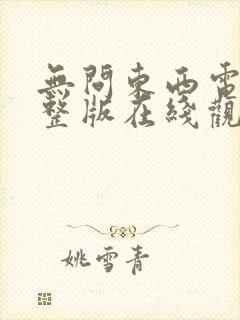 無問東西電
整版在綫觀
姚雪青